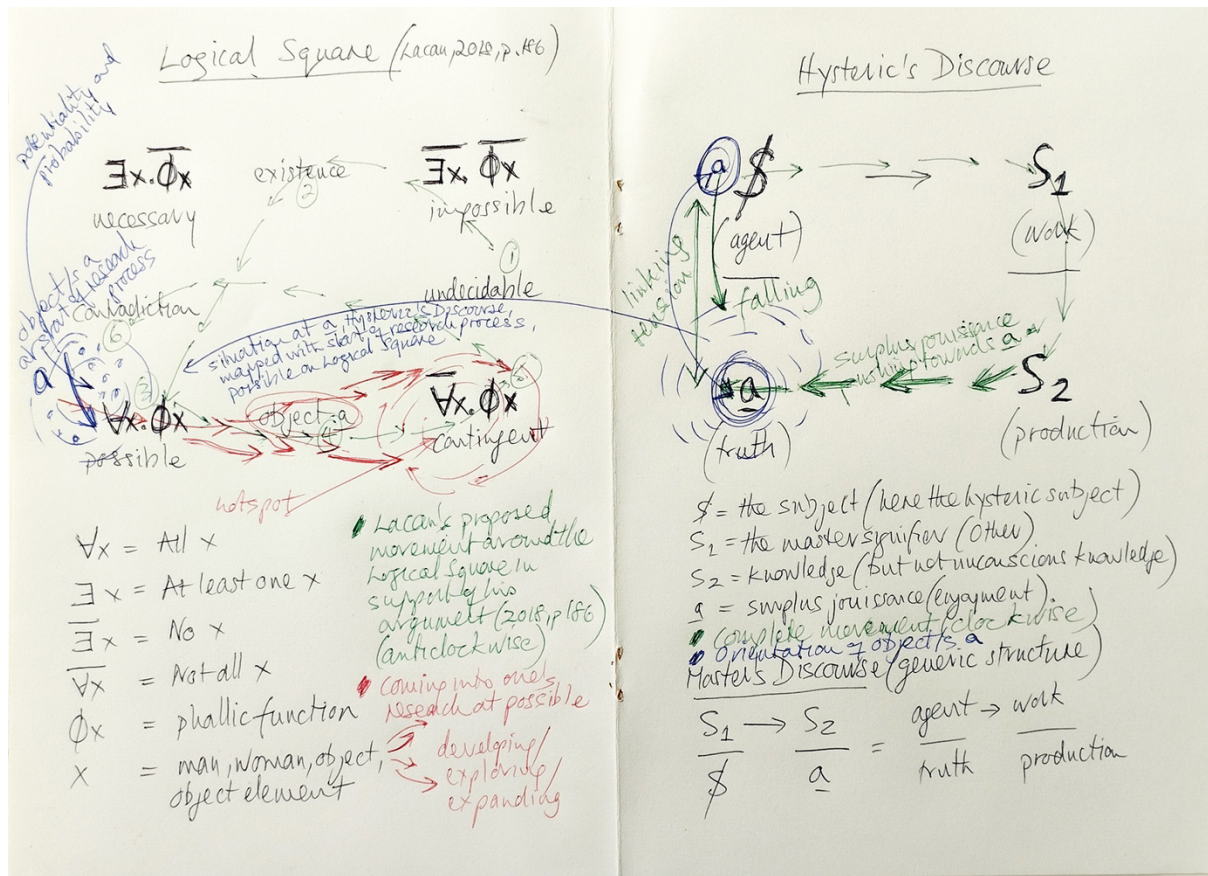 Logical Square (Lacan, 2018, p.186)
potentiality and
probability
∃x.Φ̅x
necessary
existence
②
∃̅x.Φ̅x
impossible
①
undecidable
object/s a
at start of research
process
contradiction
⑥
situation at a, Hysteric's Discourse,
mapped with start of research process,
possible on Logical Square
a
③
∀x.Φx
possible
object a
④
∀̅x.Φx
contingent
hotspot
∀x = All x
∃x = At least one x
∃̅x = No x
∀̅x = Not all x
Φx = phallic function
x = man, woman, object,
object element
Lacan's proposed
movement around the
Logical Square in
support of his
argument (2018, p.186)
(anticlockwise)
coming into one's
research at possible
developing/
exploring/
expanding
Hysteric's Discourse
a
$
(agent)
S₁
(work)
linking
tension
falling
surplus jouissance
rushing towards a
a
(truth)
S₂
(production)
$ = the subject (here the hysteric subject)
S₁ = the master signifier (Other)
S₂ = knowledge (but not unconscious knowledge)
a = surplus jouissance (enjoyment).
complete movement (clockwise)
Orientation of object/s a
Master's Discourse (generic structure)
S₁ → S₂ = agent → work
$ a truth production